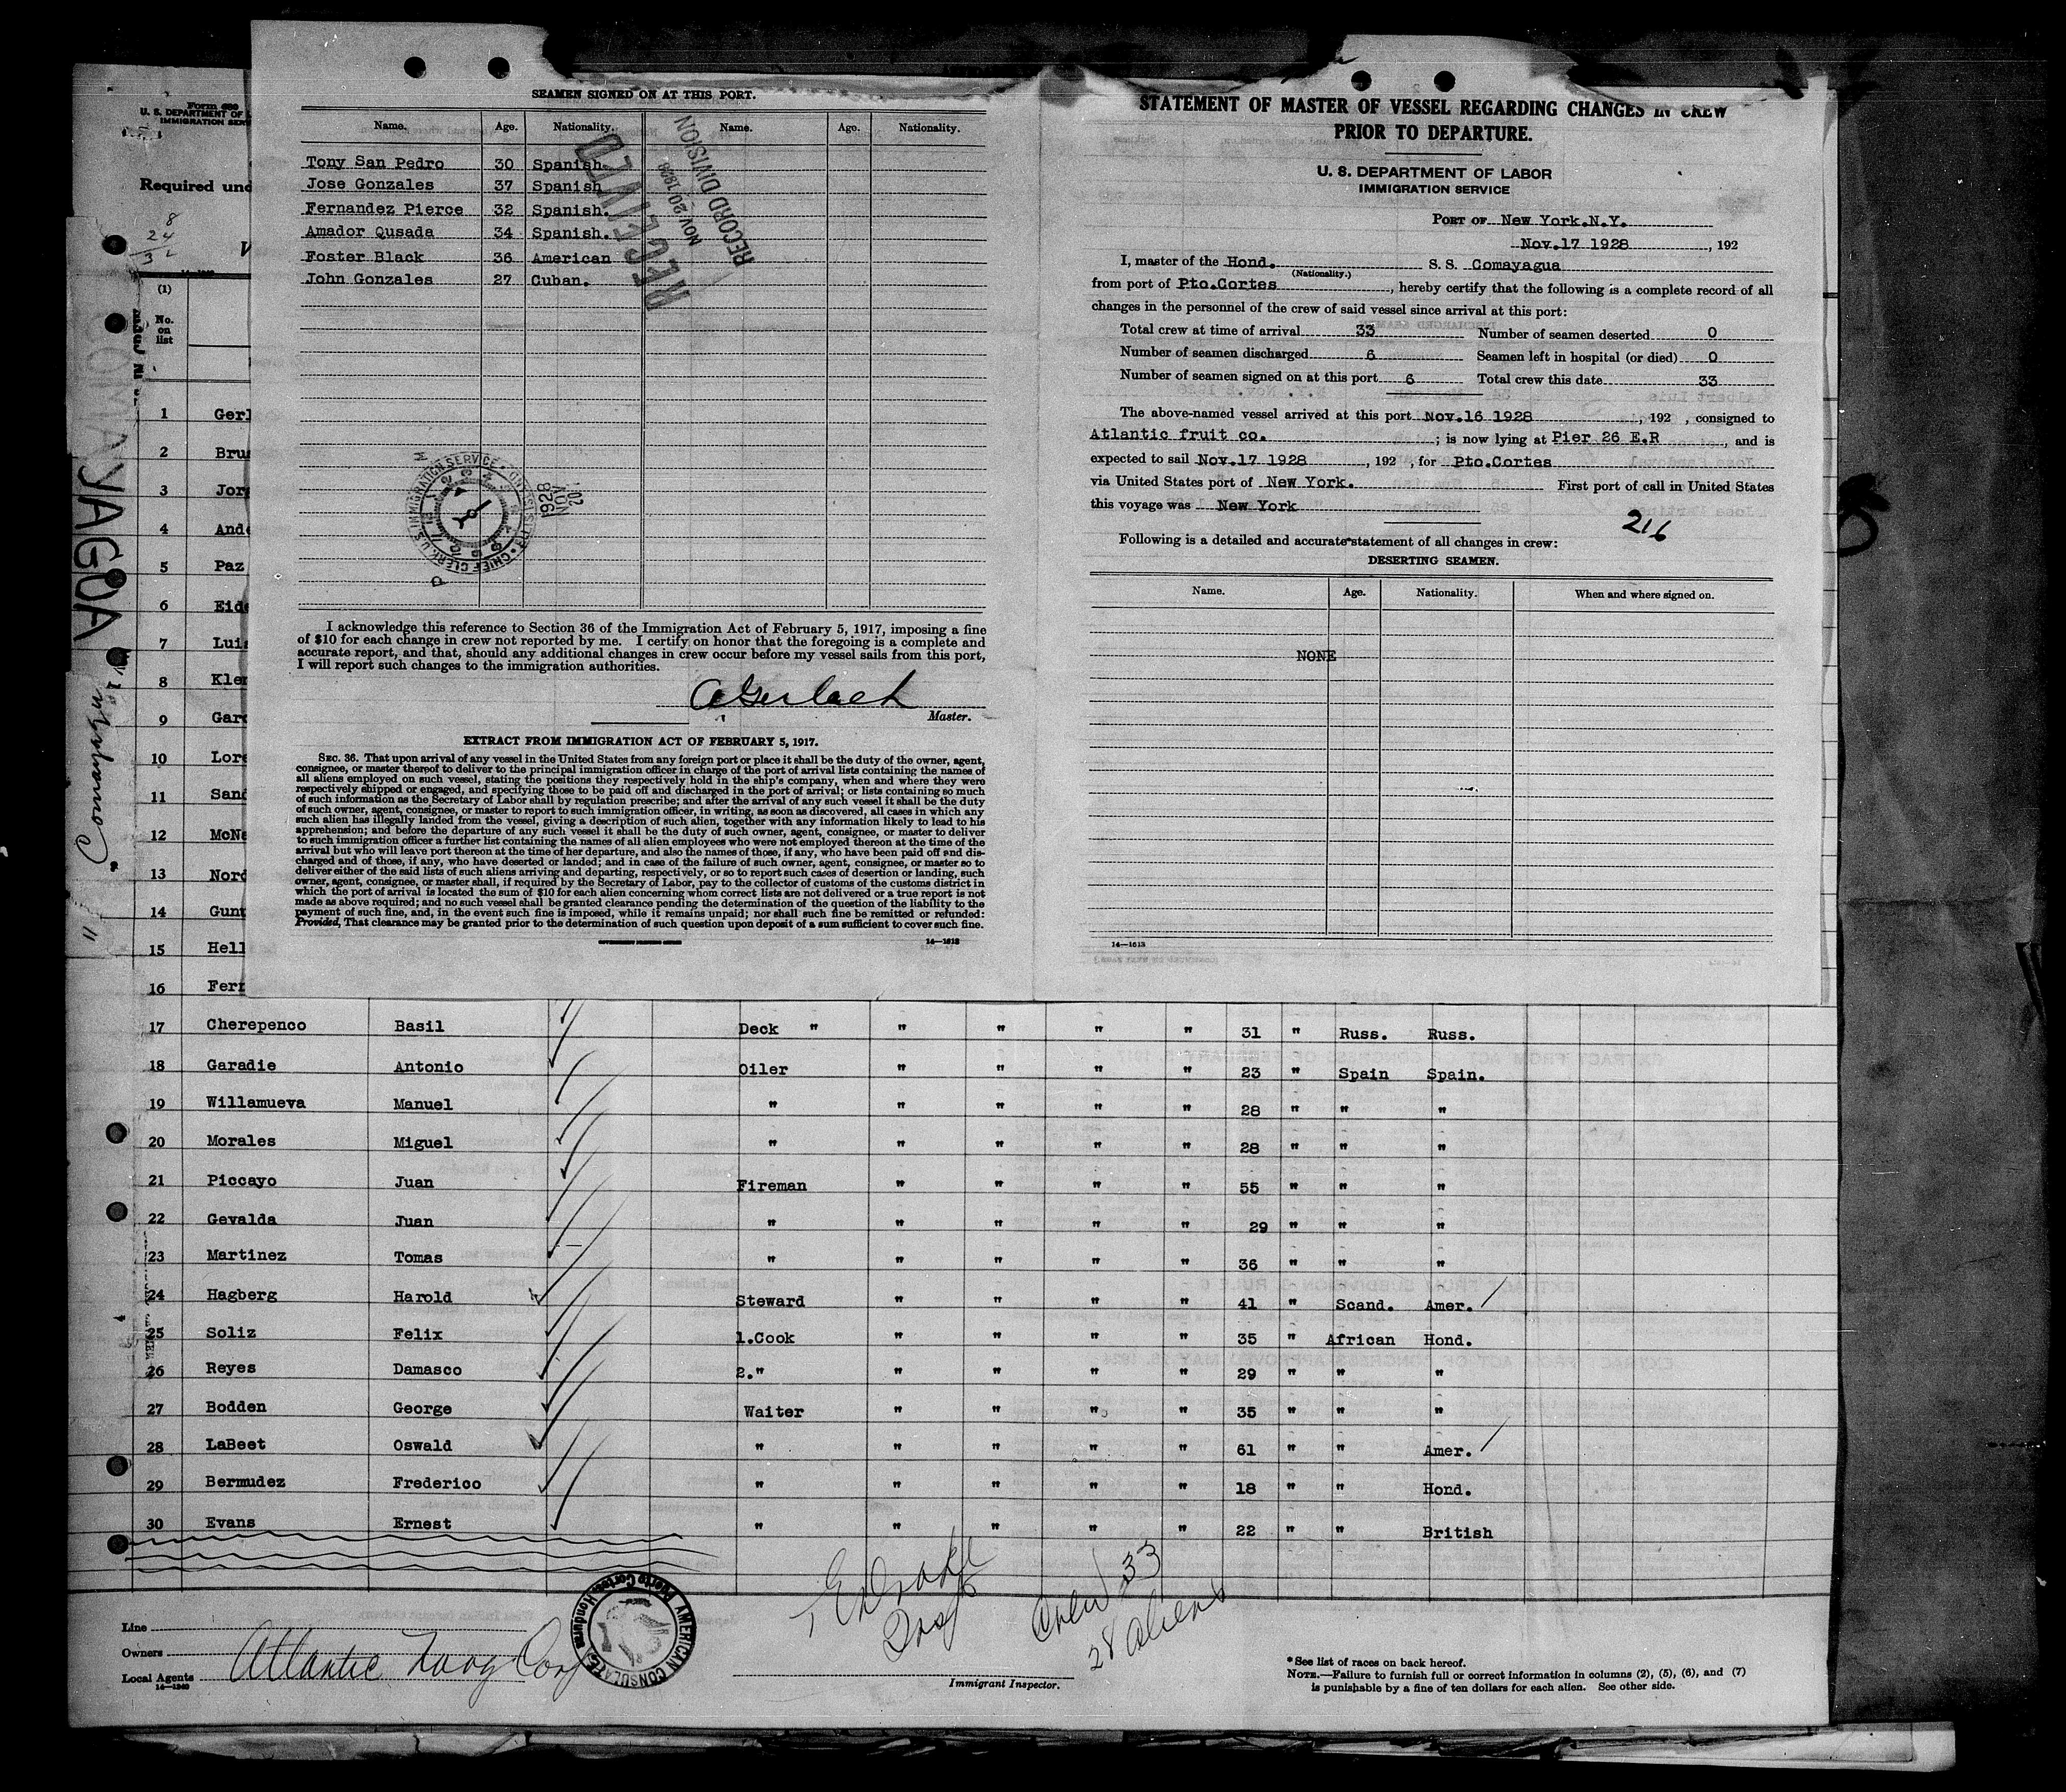 SEAMEN SIGNED ON AT THIS PORT.
Name. Age. Nationality. Name. Age. Nationality.
Tony San Pedro 30 Spanish
Jose Gonzales 37 Spanish
Fernandez Pierce 32 Spanish.
Amador Qusada 34 Spanish.
Foster Black 36 American
John Gonzales 27 Cuban.
RECEIVED
NOV 20 1928
RECORD DIVISION
CHIEF CLERK, U.S. IMMIGRATION SERVICE
1928 NOV 20
I acknowledge this reference to Section 36 of the Immigration Act of February 5, 1917, imposing a fine
of $10 for each change in crew not reported by me. I certify on honor that the foregoing is a complete and
accurate report, and that, should any additional changes in crew occur before my vessel sails from this port,
I will report such changes to the immigration authorities.
AGerlach
Master.
EXTRACT FROM IMMIGRATION ACT OF FEBRUARY 5, 1917.
SEC. 36. That upon arrival of any vessel in the United States from any foreign port or place it shall be the duty of the owner, agent,
consignee, or master thereof to deliver to the principal immigration officer in charge of the port of arrival lists containing the names of
all aliens employed on such vessel, stating the positions they respectively hold in the ship's company, when and where they were
respectively shipped or engaged, and specifying those to be paid off and discharged in the port of arrival; or lists containing so much
of such information as the Secretary of Labor shall by regulation prescribe; and after the arrival of any such vessel it shall be the duty
of such owner, agent, consignee, or master to report to such immigration officer, in writing, as soon as discovered, all cases in which any
such alien has illegally landed from the vessel, giving a description of such alien, together with any information likely to lead to his
apprehension; and before the departure of any such vessel it shall be the duty of such owner, agent, consignee, or master to deliver
to such immigration officer a further list containing the names of all alien employees who were not employed thereon at the time of the
arrival but who will leave port thereon at the time of her departure, and also the names of those, if any, who have been paid off and dis-
charged and of those, if any, who have deserted or landed; and in case of the failure of such owner, agent, consignee, or master so to
deliver either of the said lists of such aliens arriving and departing, respectively, or so to report such cases of desertion or landing, such
owner, agent, consignee, or master shall, if required by the Secretary of Labor, pay to the collector of customs of the customs district in
which the port of arrival is located the sum of $10 for each alien concerning whom correct lists are not delivered or a true report is not
made as above required; and no such vessel shall be granted clearance pending the determination of the question of the liability to the
payment of such fine, and, in the event such fine is imposed, while it remains unpaid; nor shall such fine be remitted or refunded:
Provided, That clearance may be granted prior to the determination of such question upon deposit of a sum sufficient to cover such fine.
GOVERNMENT PRINTING OFFICE 14—1613
STATEMENT OF MASTER OF VESSEL REGARDING CHANGES IN CREW
PRIOR TO DEPARTURE.
U. S. DEPARTMENT OF LABOR
IMMIGRATION SERVICE
PORT OF New York.N.Y.
Nov.17 1928, 192
I, master of the Hond. S. S. Comayagua
(Nationality.)
from port of Pto.Cortes, hereby certify that the following is a complete record of all
changes in the personnel of the crew of said vessel since arrival at this port:
Total crew at time of arrival 33 Number of seamen deserted 0
Number of seamen discharged 6 Seamen left in hospital (or died) 0
Number of seamen signed on at this port 6 Total crew this date 33
The above-named vessel arrived at this port Nov.16 1928, 192 , consigned to
Atlantic fruit co. ; is now lying at Pier 26 E.R , and is
expected to sail Nov.17 1928, 192 , for Pto.Cortes
via United States port of New York. First port of call in United States
this voyage was New York
216
Following is a detailed and accurate statement of all changes in crew:
DESERTING SEAMEN.
Name. Age. Nationality. When and where signed on.
NONE
14—1613
Form 680
U. S. DEPARTMENT OF
IMMIGRATION SERV
Required und
8
24
32
V
14—1240
(1)
No.
on
list
COMAYAGUA
"Comayagua"
1 Gerl
2 Bru
3 Jor
4 And
5 Paz
6 Eid
7 Lui
8 Kle
9 Gar
10 Lor
11 San
12 McN
13 Nord
14 Gunt
15 Hell
16 Fer
17 Cherepenco Basil Deck " " " " " 31 " Russ. Russ.
18 Garadie Antonio Oiler " " " " 23 " Spain Spain.
19 Willamueva Manuel " " " " " 28 " " "
20 Morales Miguel " " " " " 28 " " "
21 Piccayo Juan Fireman " " " " 55 " " "
22 Gevalda Juan " " " " " 29 " " "
23 Martinez Tomas " " " " " 36 " " "
24 Hagberg Harold Steward " " " " 41 " Scand. Amer.
25 Soliz Felix 1.Cook " " " " 35 " African Hond.
26 Reyes Damasco 2." " " " " 29 " " "
27 Bodden George Waiter " " " " 35 " " "
28 LaBeet Oswald " " " " " 61 " " Amer.
29 Bermudez Frederico " " " " " 18 " " Hond.
30 Evans Ernest " " " " " 22 " " British
Crew 33
28 aliens
Line
Owners
Local Agents Atlantic Navg Corp
14—1240
AMERICAN CONSULATE
Puerto Cortes, Honduras
Immigrant Inspector.
* See list of races on back hereof.
NOTE.—Failure to furnish full or correct information in columns (2), (5), (6), and (7)
is punishable by a fine of ten dollars for each alien. See other side.